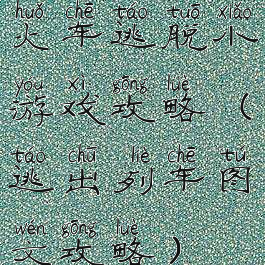 huǒ chē táo tuō xiǎo
火车逃脱小
yóu xì gōng lüè
游戏攻略（
táo chū liè chē tú
逃出列车图
wén gōng lüè
文攻略）